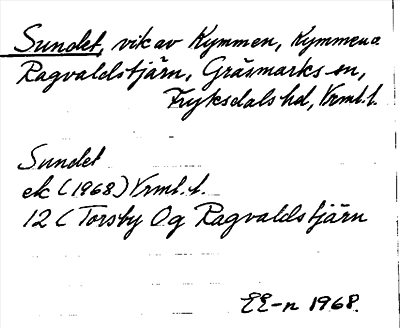 Sundet, vik av Kymmen, Kymmen o
Ragvaldstjärn, Gräsmarks sn,
Fryksdals hd, Vrml. l.
Sundet
ek (1968) Vrml. l.
12 C Torsby Og Ragvaldstjärn
EE-n 1968.